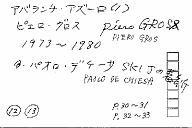 アバランチ・アズーロ(1)
ピエロ・グロス Piero GROSS
PIERO GROS
1973〜1980
パオロ・デキーサ SKI
PAOLO DE CHIESA
⑫ ⑬
P.30〜31
P.32〜33